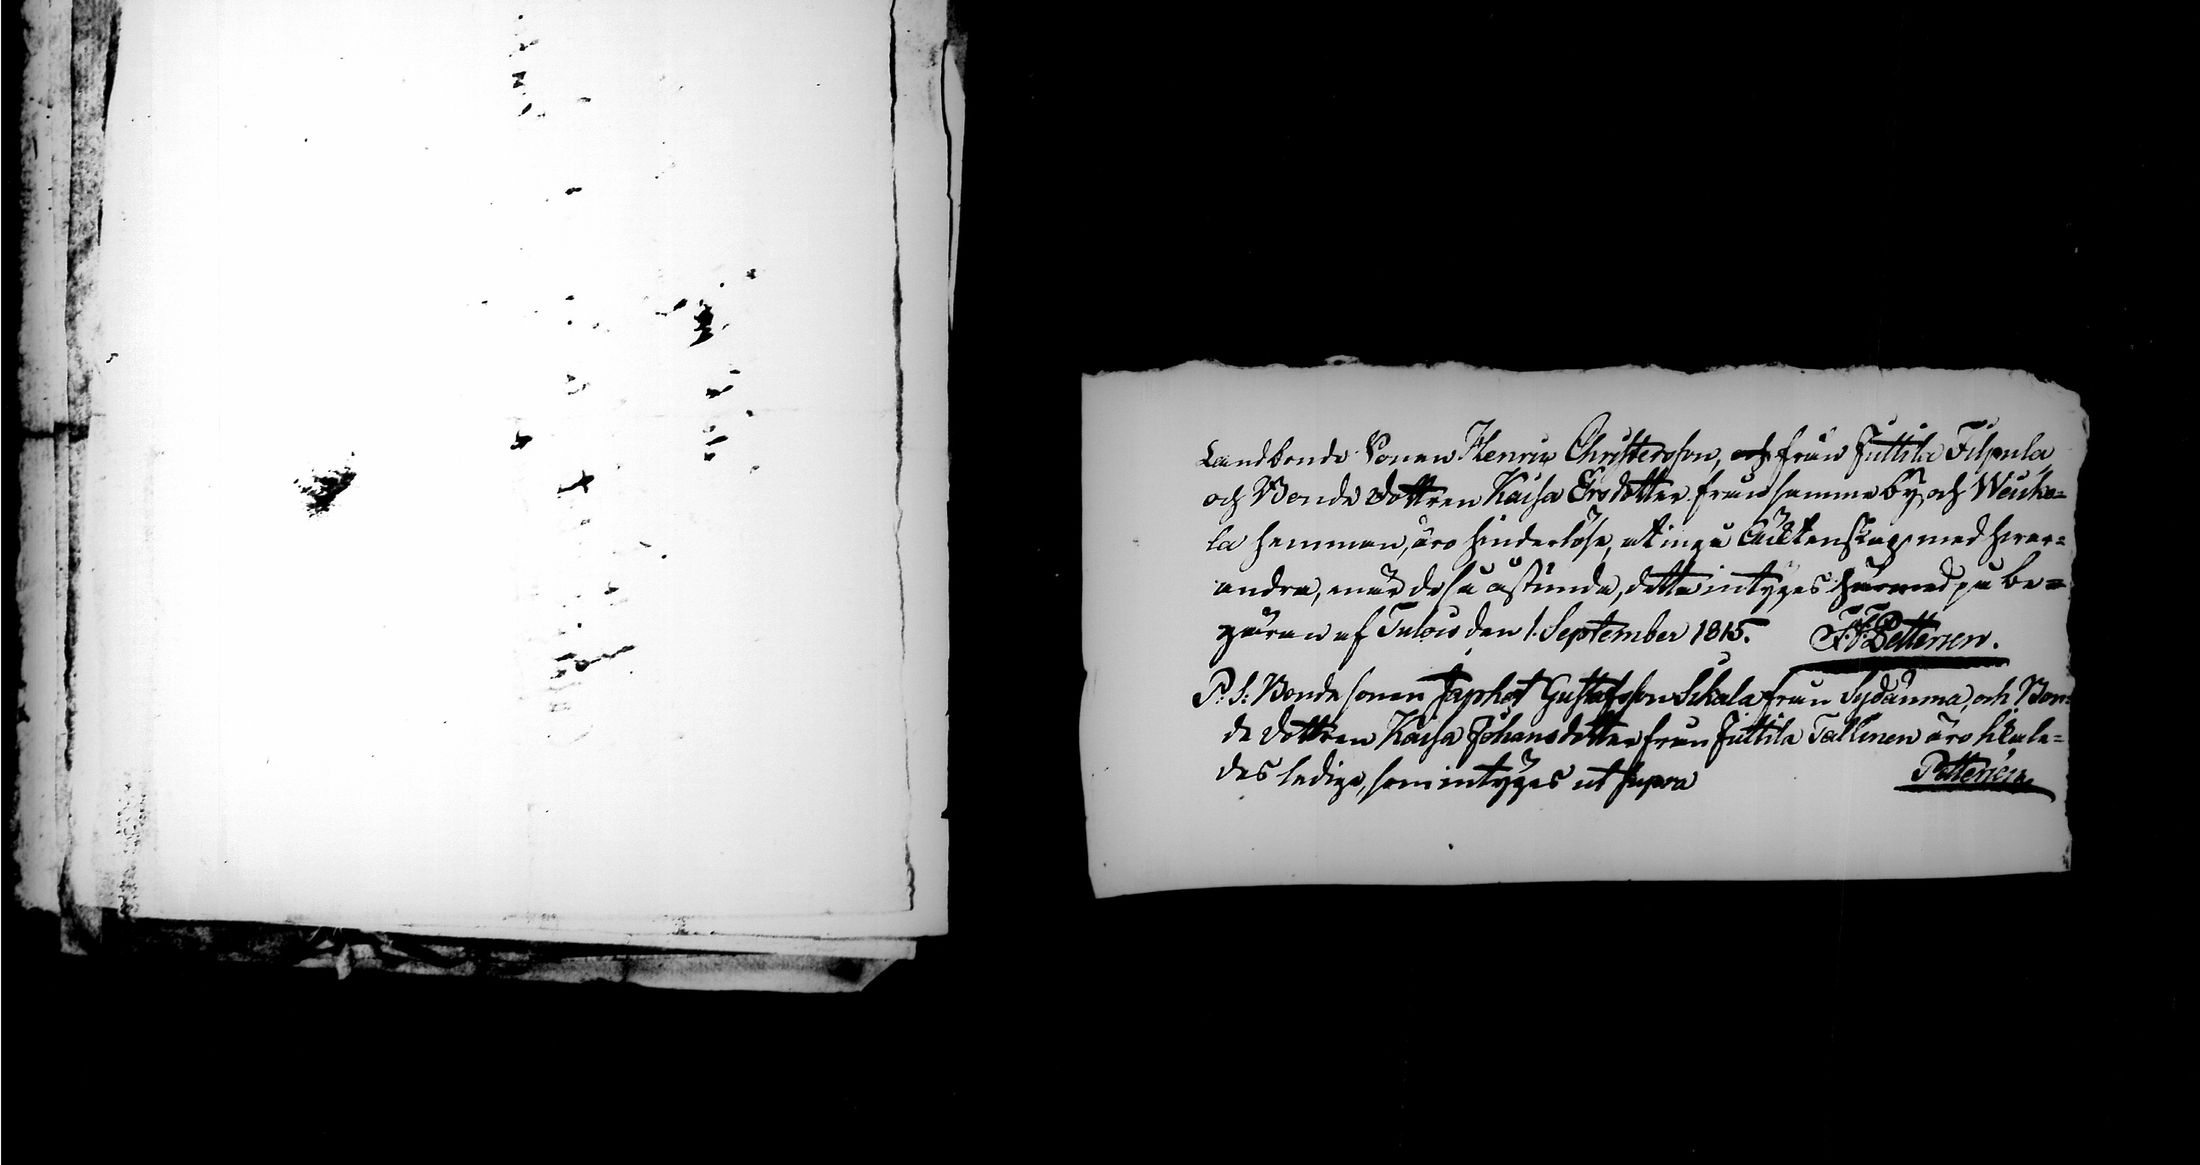 Landbonde Sonen Henric Christersson, och från Juttila Filpula
och Bonde dottren Kaisa Ersdotter från samma by, och Weuke=
la hemman, äro hinderlöse, at ingå Äcktenskap med hvar=
andra, när de så åstunda, detta intyges härmed på be=
gäran af Tulois den 1. September 1815. F. F. Petterson.
P. S: Bonde sonen Japhet Gustafsson Sikala från Sydänma, och Bon=
de dottren Kaisa Johansdotter från Juttila Tallinen äro likale=
des ledige, som intyges ut supra Petterson